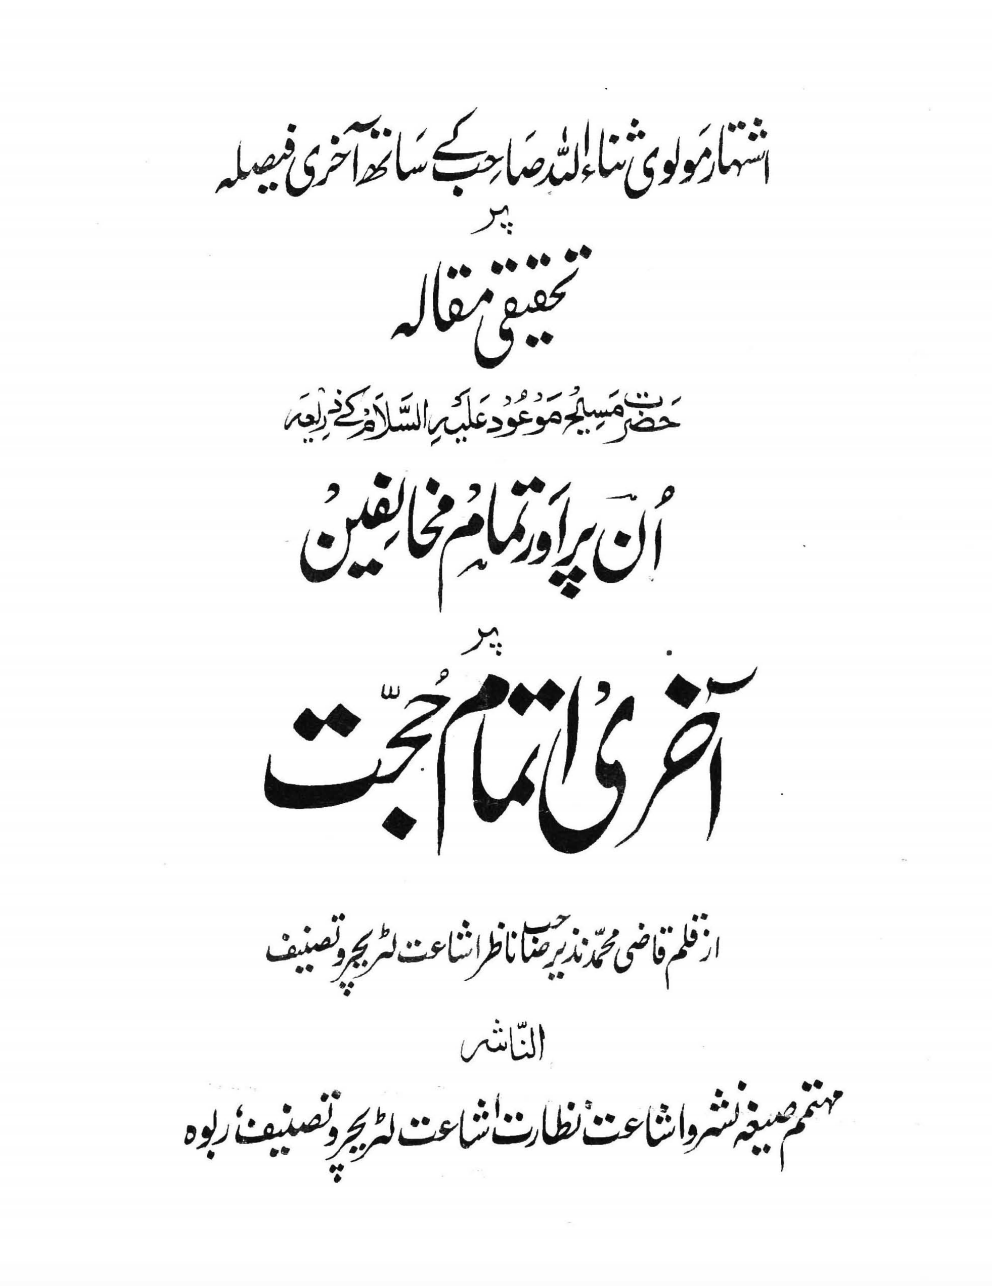 اشتہار مولوی ثناء اللہ صاحب کے ساتھ آخری فیصلہ
پر
تحقیقی مقالہ
حضرت مسیح موعود علیہ السلام کے ذریعہ
اُن پر اور تمام مخالفین
پر
آخری اتمام حُجّت
از قلم قاضی محمّد نذیر صاحب ناظر اشاعت لٹریچر و تصنیف
النّاشر
مہتمم صیغہ نشر و اشاعت نظارت اشاعت لٹریچر و تصنیف، ربوہ